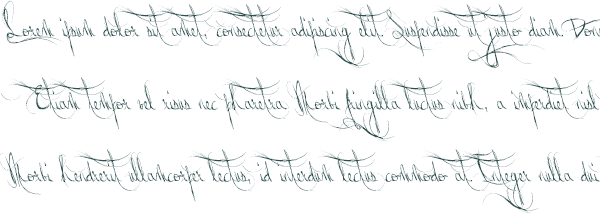 Lorem ipsum dolor sit amet, consectetur adipiscing elit. Suspendisse ut justo diam. Don
Etiam tempor vel risus nec pharetra. Morbi fringilla luctus nibh, a imperdiet nisl
Morbi hendrerit ullamcorper lectus, id interdum lectus commodo at. Integer nulla dui